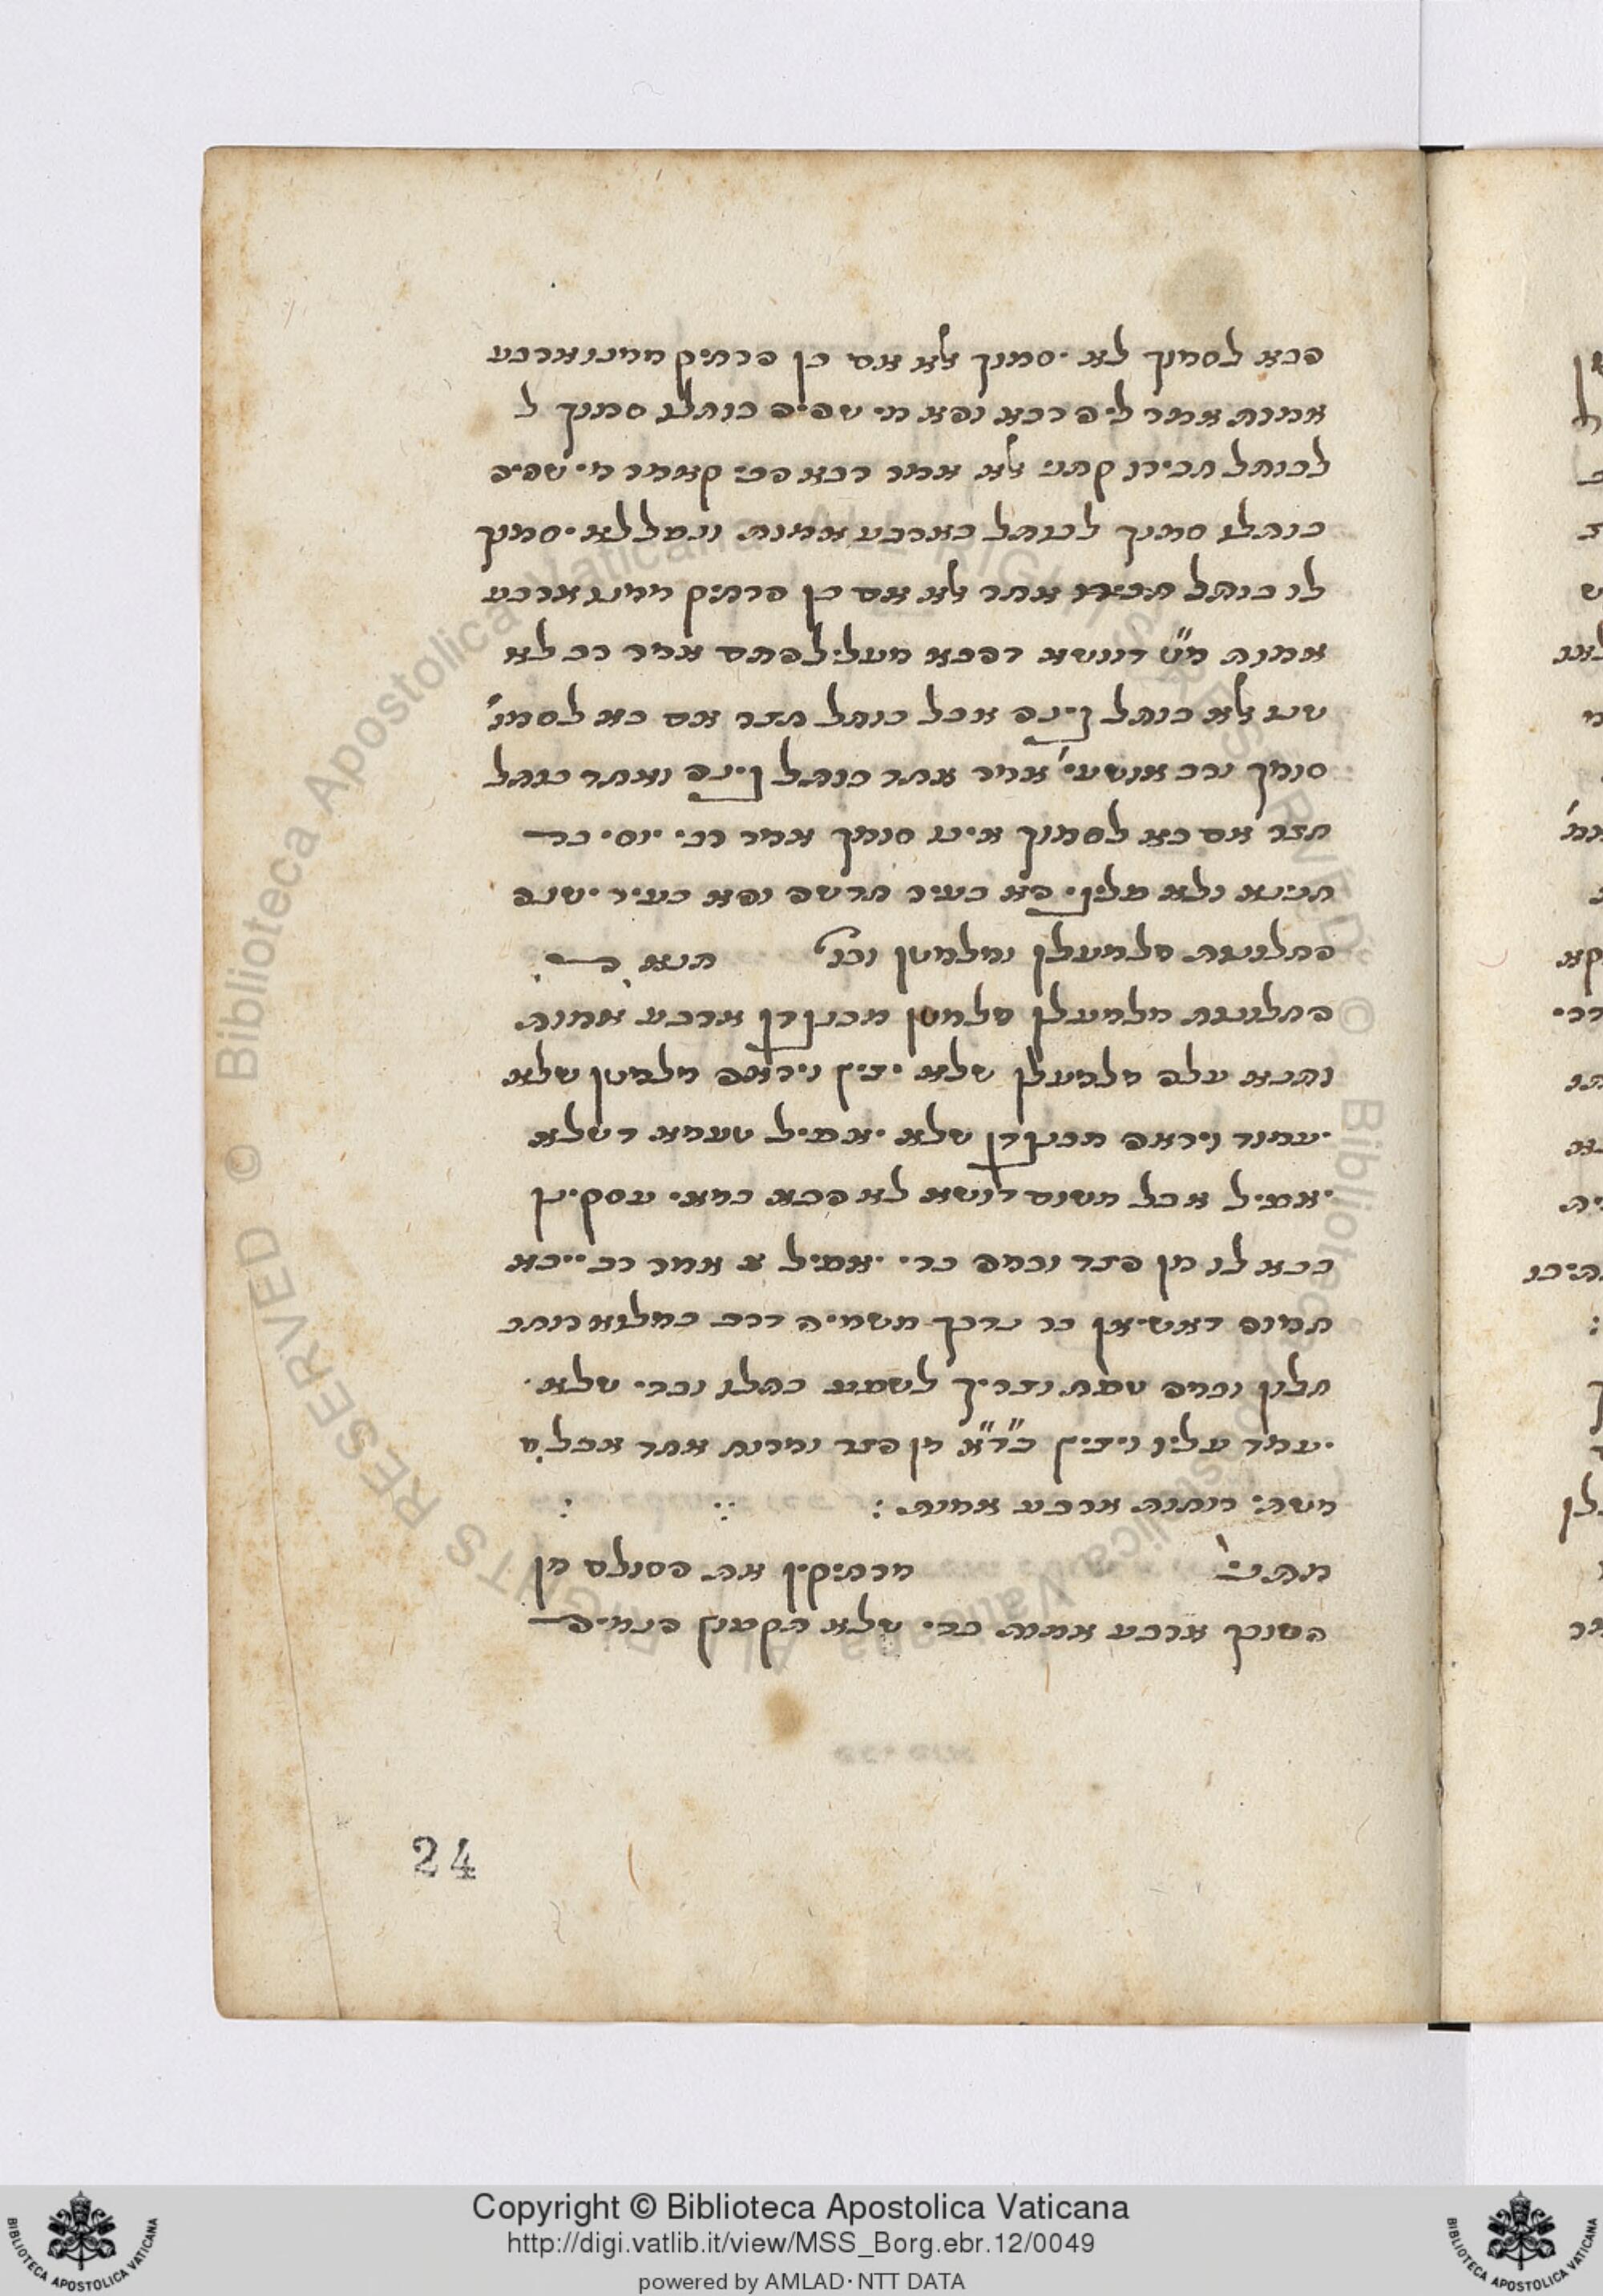 הבא לסמוך לא יסמוך אלא אם כן הרחיק ממנו ארבע
אמות אמר ליה רבא והא מי שהיה כותלו סמוך ל
לכותל חבירו קתני אלא אמר רבא הכי קאמר מי שהיה
כותלו סמוך לכותל בארבע אמות ונפל לא יסמוך
לו כותל חבירו אחר אלא אם כן הרחיק ממנו ארבע
אמות מ"ט דוושא דהכא מעלי להתם אמר רב לא
שנו אלא כותל גינה אבל כותל חצר אם בא לסמו'
סומך ורב אושעי' אמר אחד כותל גינה ואחד כותל
חצר אם בא לסמוך אינו סומך אמר רבי יוסי בר
חנינא ולא פליגי הא בעיר חדשה והא בעיר ישנה
החלונות מלמעלן ומלמטן וכו' תנא
החלונות מלמעלן מלמטן מכנגדן ארבע אמות
ותנא עלה מלמעלן שלא יציץ ויראה מלמטן שלא
יעמוד ויראה מכנגדן שלא יאפיל טעמא דשלא
יאפיל אבל משום דוושא לא הכא במאי עסקינן
בבא לו מן הצד וכמה כדי יאפיל אמר רב ייבא
חמוה דאשיאן בר נדבך משמיה דרב כמלוא רוחב
חלון וכמה טפח וצריך לשפע כתלו וכדי שלא
יעמוד עליו ויציץ בד"א מן הצד ומרוח אחד אבל מ
משתי רוחות ארבע אמות :
מתני' מרחיקין את הסולם מן
השובך ארבע אמות כדי שלא תקפוץ הנמיה
24
Copyright © Biblioteca Apostolica Vaticana
http://digi.vatlib.it/view/MSS_Borg.ebr.12/0049
powered by AMLAD·NTT DATA